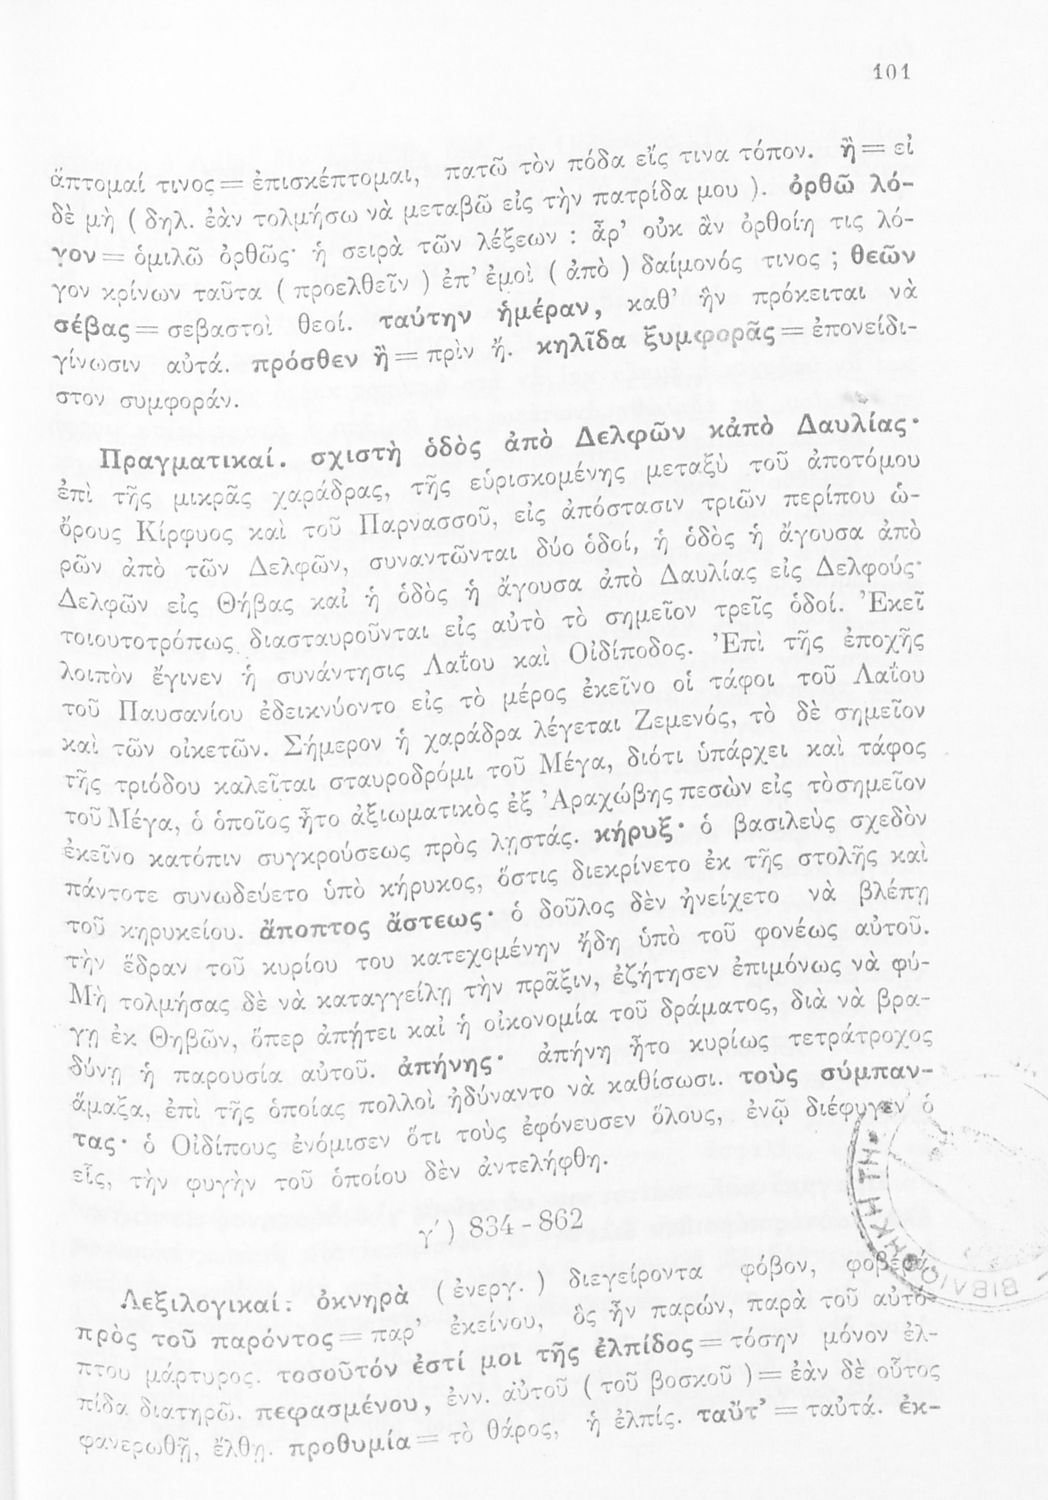 101
ἅπτομαί τινος = ἐπισκέπτομαι, πατῶ τὸν πόδα εἴς τινα τόπον. ἢ = εἰ
δὲ μὴ ( δηλ. ἐὰν τολμήσω νὰ μεταβῶ εἰς τὴν πατρίδα μου ). ὀρθῶ λό-
γον = ὁμιλῶ ὀρθῶς· ἡ σειρὰ τῶν λέξεων : ἆρ’ οὐκ ἂν ὀρθοίη τις λό-
γον κρίνων ταῦτα ( προελθεῖν ) ἐπ’ ἐμοὶ ( ἀπὸ ) δαίμονός τινος ; θεῶν
σέβας = σεβαστοὶ θεοί. ταύτην ἡμέραν, καθ’ ἣν πρόκειται νὰ
γίνωσιν αὐτά. πρόσθεν ἢ = πρὶν ἤ. κηλῖδα ξυμφορᾶς = ἐπονείδι-
στον συμφοράν.
Πραγματικαί. σχιστὴ ὁδὸς ἀπὸ Δελφῶν κἀπὸ Δαυλίας·
ἐπὶ τῆς μικρᾶς χαράδρας, τῆς εὑρισκομένης μεταξὺ τοῦ ἀποτόμου
ὄρους Κίρφυος καὶ τοῦ Παρνασσοῦ, εἰς ἀπόστασιν τριῶν περίπου ὡ-
ρῶν ἀπὸ τῶν Δελφῶν, συναντῶνται δύο ὁδοί, ἡ ὁδὸς ἡ ἄγουσα ἀπὸ
Δελφῶν εἰς Θήβας καὶ ἡ ὁδὸς ἡ ἄγουσα ἀπὸ Δαυλίας εἰς Δελφούς·
τοιουτοτρόπως διασταυροῦνται εἰς αὐτὸ τὸ σημεῖον τρεῖς ὁδοί. Ἐκεῖ
λοιπὸν ἔγινεν ἡ συνάντησις Λαΐου καὶ Οἰδίποδος. Ἐπὶ τῆς ἐποχῆς
τοῦ Παυσανίου ἐδεικνύοντο εἰς τὸ μέρος ἐκεῖνο οἱ τάφοι τοῦ Λαΐου
καὶ τῶν οἰκετῶν. Σήμερον ἡ χαράδρα λέγεται Ζεμενός, τὸ δὲ σημεῖον
τῆς τριόδου καλεῖται σταυροδρόμι τοῦ Μέγα, διότι ὑπάρχει καὶ τάφος
τοῦ Μέγα, ὁ ὁποῖος ἦτο ἀξιωματικὸς ἐξ Ἀραχώβης πεσὼν εἰς τὸσημεῖον
ἐκεῖνο κατόπιν συγκρούσεως πρὸς λῃστάς. κήρυξ· ὁ βασιλεὺς σχεδὸν
πάντοτε συνωδεύετο ὑπὸ κήρυκος, ὅστις διεκρίνετο ἐκ τῆς στολῆς καὶ
τοῦ κηρυκείου. ἄποπτος ἄστεως· ὁ δοῦλος δὲν ἠνείχετο νὰ βλέπῃ
τὴν ἕδραν τοῦ κυρίου του κατεχομένην ἤδη ὑπὸ τοῦ φονέως αὐτοῦ.
Μὴ τολμήσας δὲ νὰ καταγγείλῃ τὴν πρᾶξιν, ἐζήτησεν ἐπιμόνως νὰ φύ-
γῃ ἐκ Θηβῶν, ὅπερ ἀπῄτει καὶ ἡ οἰκονομία τοῦ δράματος, διὰ νὰ βρα-
δύνῃ ἡ παρουσία αὐτοῦ. ἀπήνης· ἀπήνη ἦτο κυρίως τετράτροχος
ἅμαξα, ἐπὶ τῆς ὁποίας πολλοὶ ἠδύναντο νὰ καθίσωσι. τοὺς σύμπαν-
τας· ὁ Οἰδίπους ἐνόμισεν ὅτι τοὺς ἐφόνευσεν ὅλους, ἐνῷ διέφυγεν ὁ
εἷς, τὴν φυγὴν τοῦ ὁποίου δὲν ἀντελήφθη.
γ΄) 834 - 862
Λεξιλογικαί. ὀκνηρὰ ( ἐνεργ. ) διεγείροντα φόβον, φοβερά.
πρὸς τοῦ παρόντος = παρ’ ἐκείνου, ὃς ἦν παρών, παρὰ τοῦ αὐτό-
πτου μάρτυρος. τοσοῦτόν ἐστί μοι τῆς ἐλπίδος = τόσην μόνον ἐλ-
πίδα διατηρῶ. πεφασμένου, ἐνν. αὐτοῦ ( τοῦ βοσκοῦ ) = ἐὰν δὲ οὗτος
φανερωθῇ, ἔλθῃ. προθυμία = τὸ θάρος, ἡ ἐλπίς. ταὔτ’ = ταὐτά. ἐκ-
ΒΙΒΛΙΟΘΗΚΗ ΤΗ